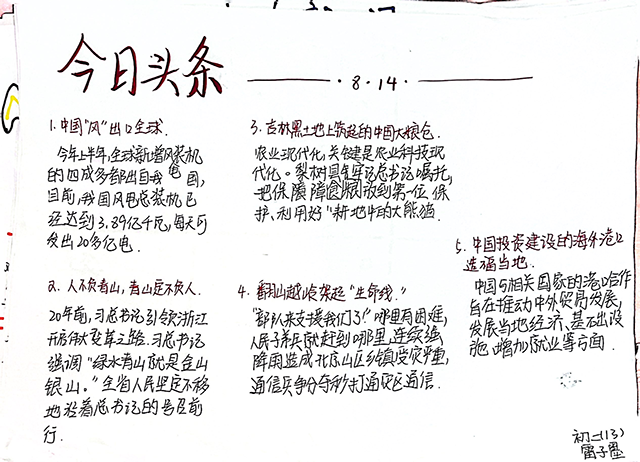 今日头条
·8·14·
1.中国"风"出口全球.
今年上半年,全球新增风装机
的四成多都出自我国,
目前,我国风电总装机已
经达到3.89亿千瓦,每天可
发出20多亿电.
2.人不负青山,青山定不负人.
20年前,习总书记引领浙江
开启伟大变革之路.习总书记
强调"绿水青山就是金山
银山."全省人民坚定不移
地沿着总书记的号召前
行.
3.吉林黑土地上筑起的中国大粮仓.
农业现代化,关键是农业科技现
代化。梨树县牢记总书记嘱托,
把保障粮放到第一位 保
护、利用好"耕地中的大熊猫.
4.翻山越岭架起"生命线."
"部队来支援我们了!"哪里有困难,
人民子弟兵就赶到哪里,连续强
降雨造成北京山区乡镇受灾严重,
通信兵争分夺秒打通灾区通信.
5.中国投资建设的海外港口
造福当地.
中国与相关国家的港口合作
旨在推动中外贸易发展,
发展当地经济、基础设
施、增加就业等方面.
初二(13)
雷子墨